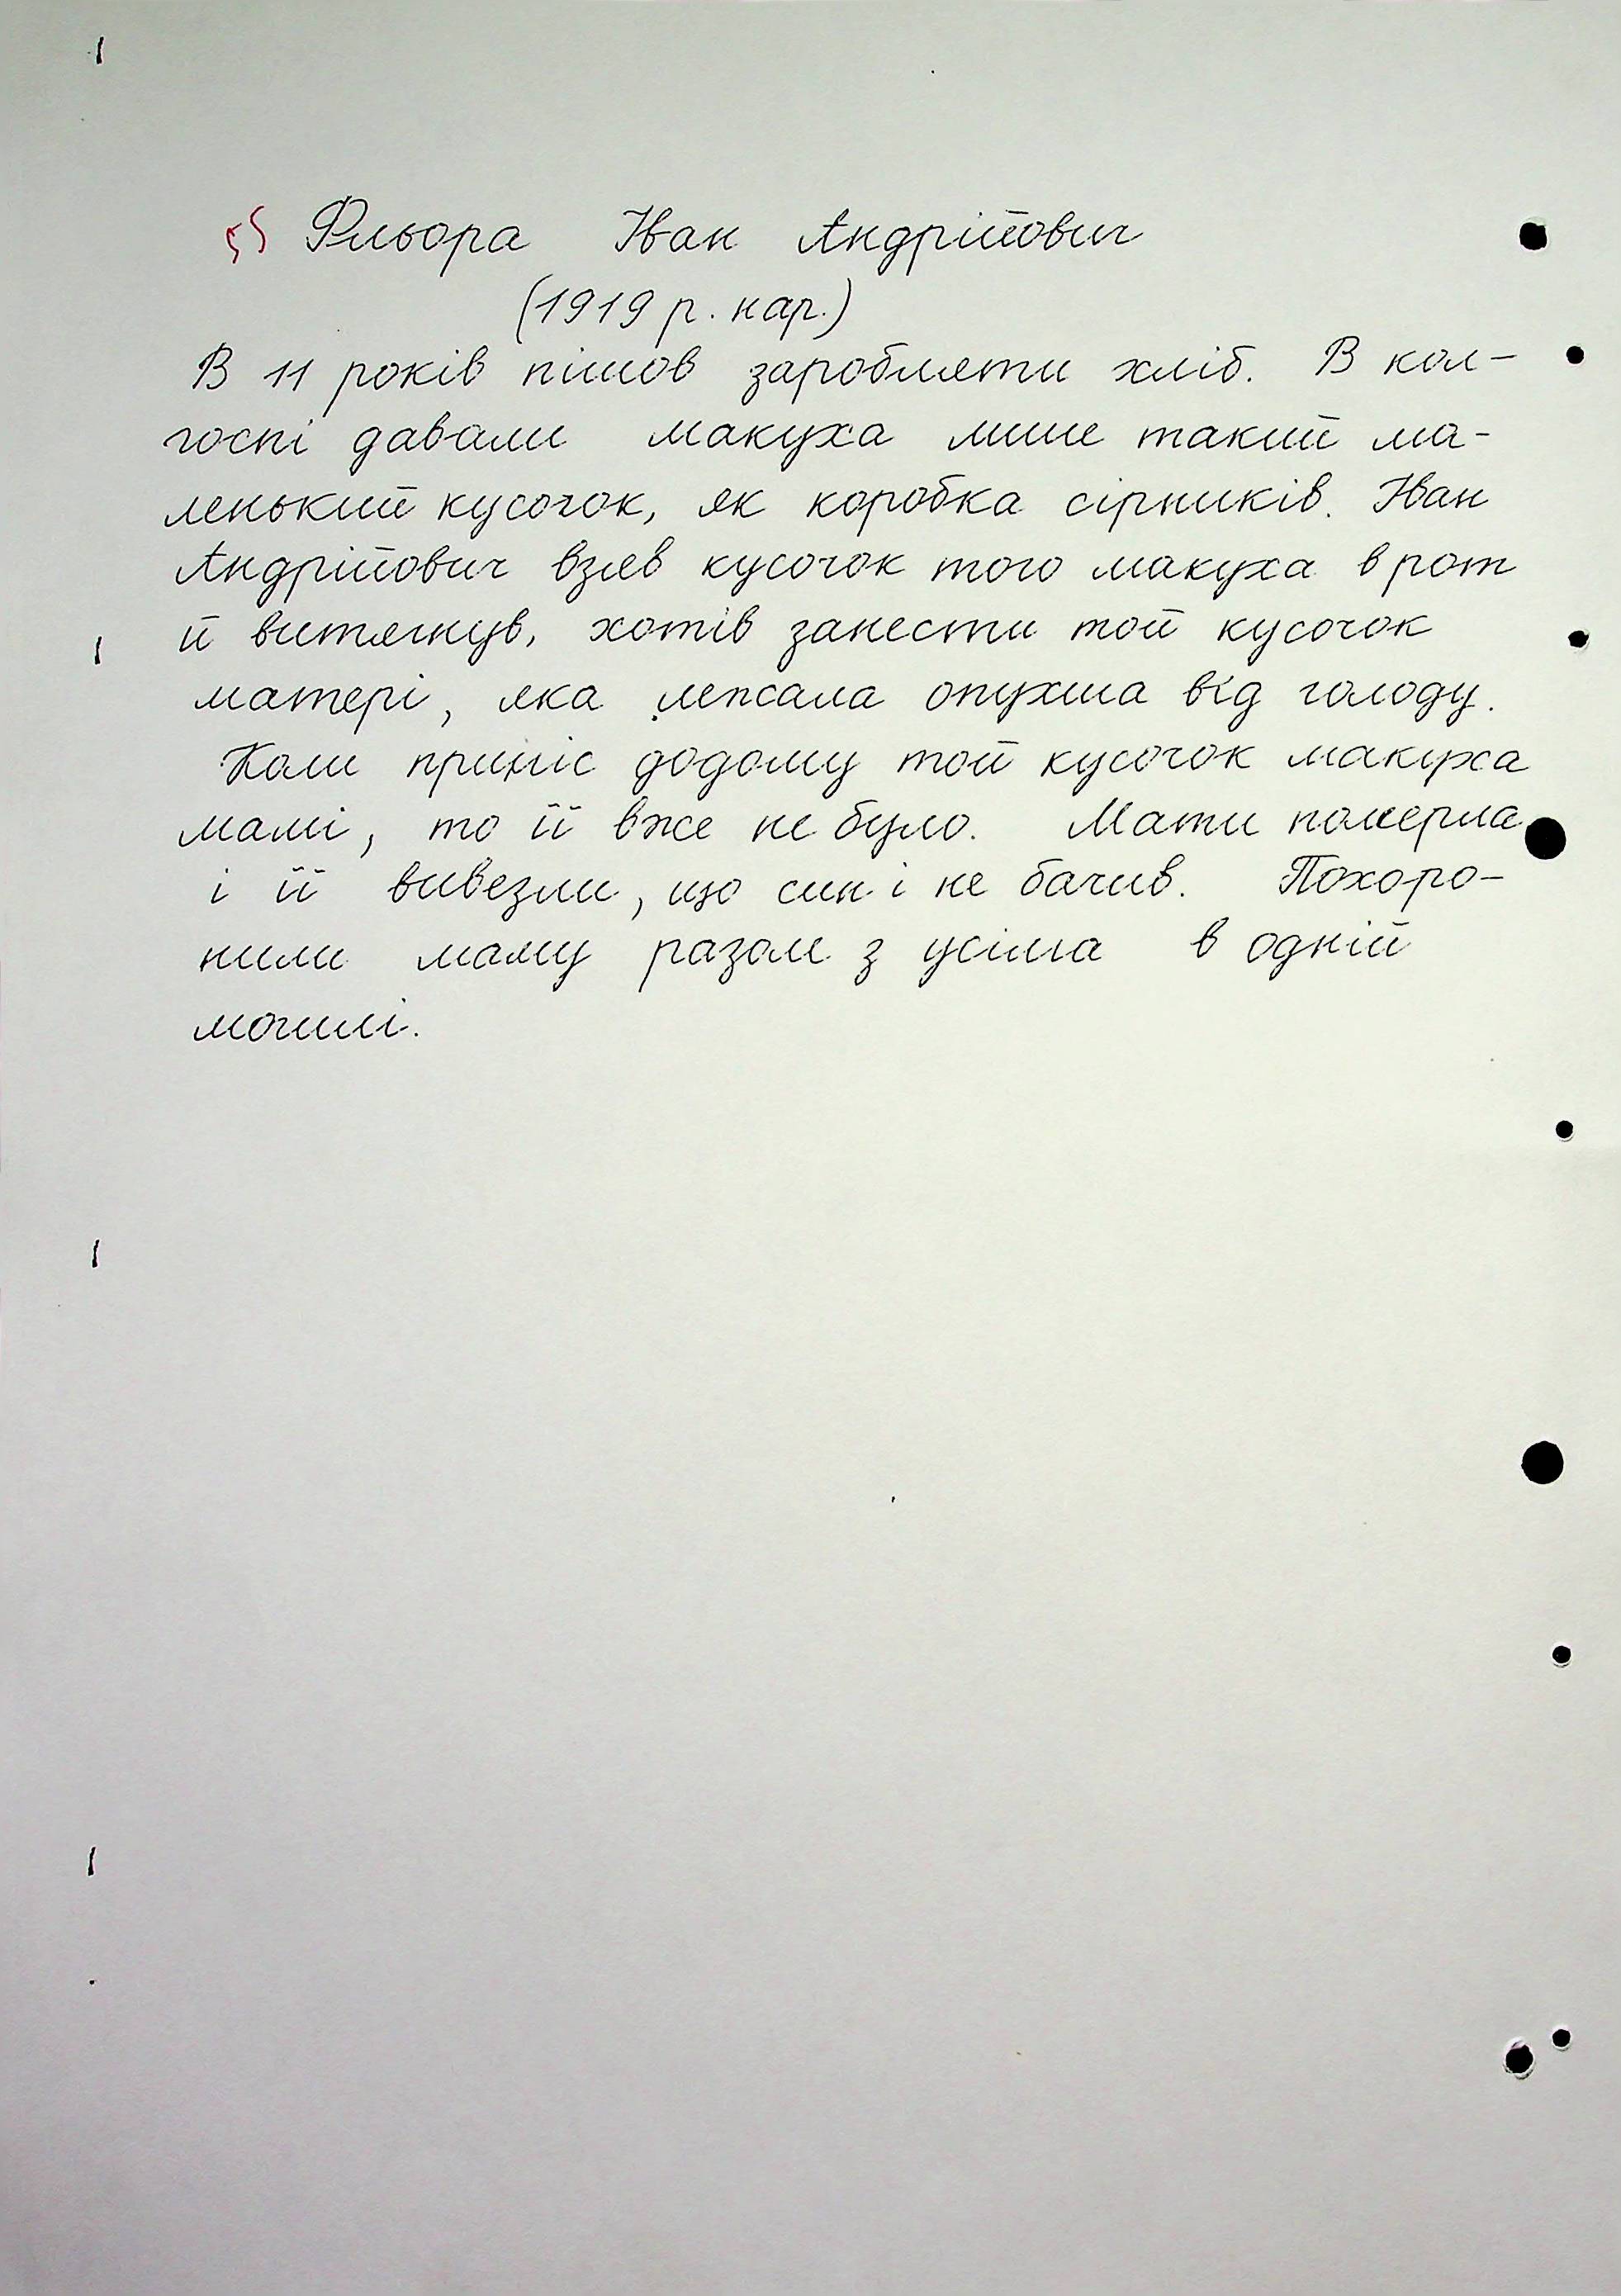 § Фльора Іван Андрійович
(1919 р. нар.)
В 11 років пішов заробляти хліб. В кол-
госпі давали макуха лише такий ма-
ленький кусочок, як коробка сірників. Іван
Андрійович взяв кусочок того макуха в рот
й витягнув, хотів занести той кусочок
матері, яка лежала опухша від голоду.
Коли приніс додому той кусочок макуха
мамі, то її вже не було. Мати померла
і її вивезли, що син і не бачив. Похоро-
нили маму разом з усіма в одній
могилі.